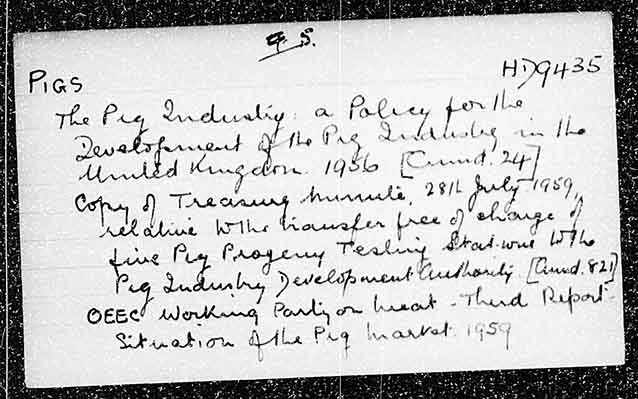 F. S.
PIGS
HD9435
The Pig Industry: a Policy for the
Development of the Pig Industry in the
United Kingdom. 1956 [Cmnd. 24]
Copy of Treasury Minute, 28th July 1959,
relative to the transfer free of charge of
five Pig Progeny Testing Stations to the
Pig Industry Development Authority. [Cmnd. 821]
OEEC Working Party on Meat - Third Report -
Situation of the Pig Market. 1959